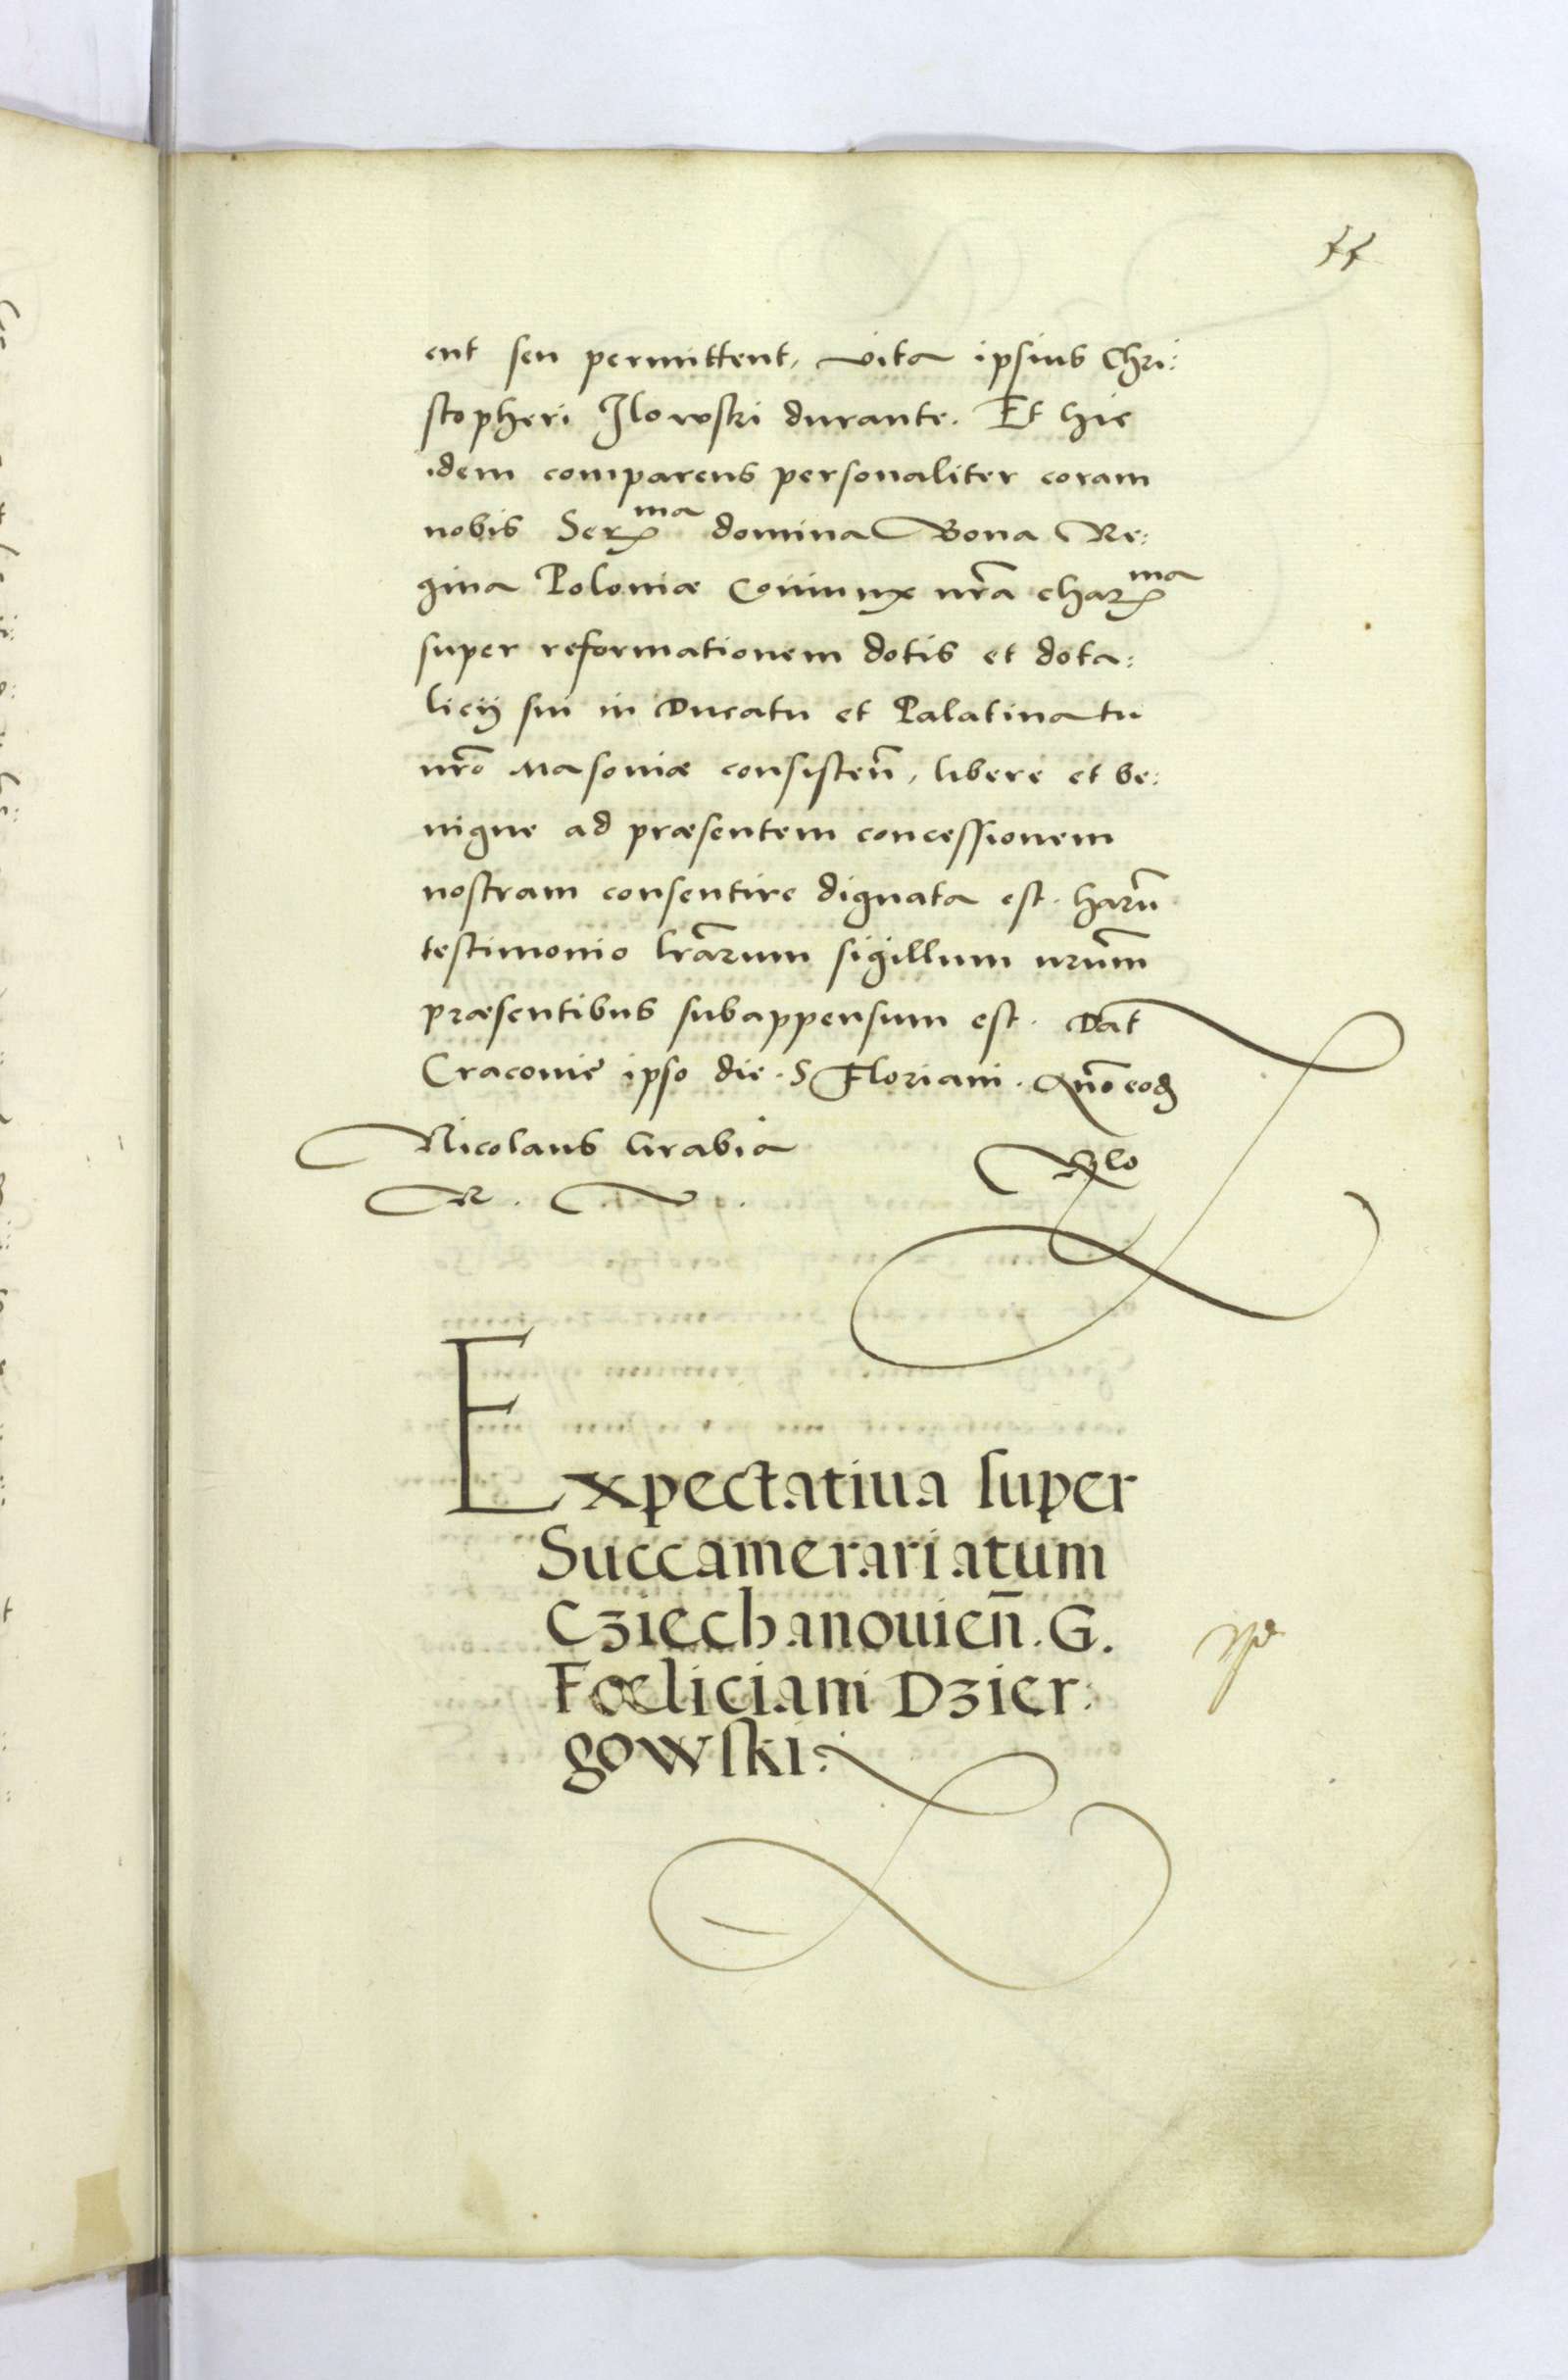 55
ent seu permittent, vita ipsius Chri:
stopheri Jlowski durante. Et hic
idem comparens personaliter coram
nobis Ser^ma domina Bona Re:
gina Poloniæ Coniunx nr̃a char^ma
super reformationem dotis et dota:
licÿ sui in Ducatu et Palatinatu
nr̃o Masoniæ consisteñ, libere et be:
nigne ad præsentem concessionem
nostram consentire dignata est. harũ
testimonio lr̃arum sigillum nrũm
præsentibus subappensum est. Dat̃
Cracovię ipso die. S Floriani. Año eod
Nicolaus Grabia
R. V.
Expectatiua super
Succamerariatum
Cziechanouieñ. G.
Fœliciani Dzier:
gowski: